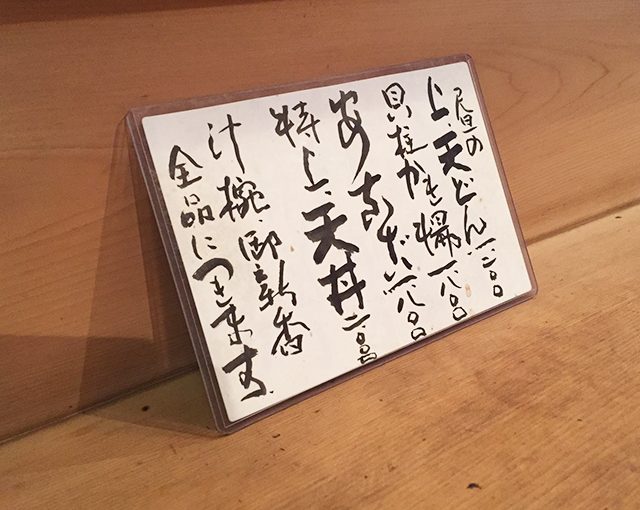 昼の
上天どん 一二〇〇
貝柱かき揚 一八〇〇
一八〇〇
特上天丼 二〇〇〇
汁椀 御新香
全品につきます